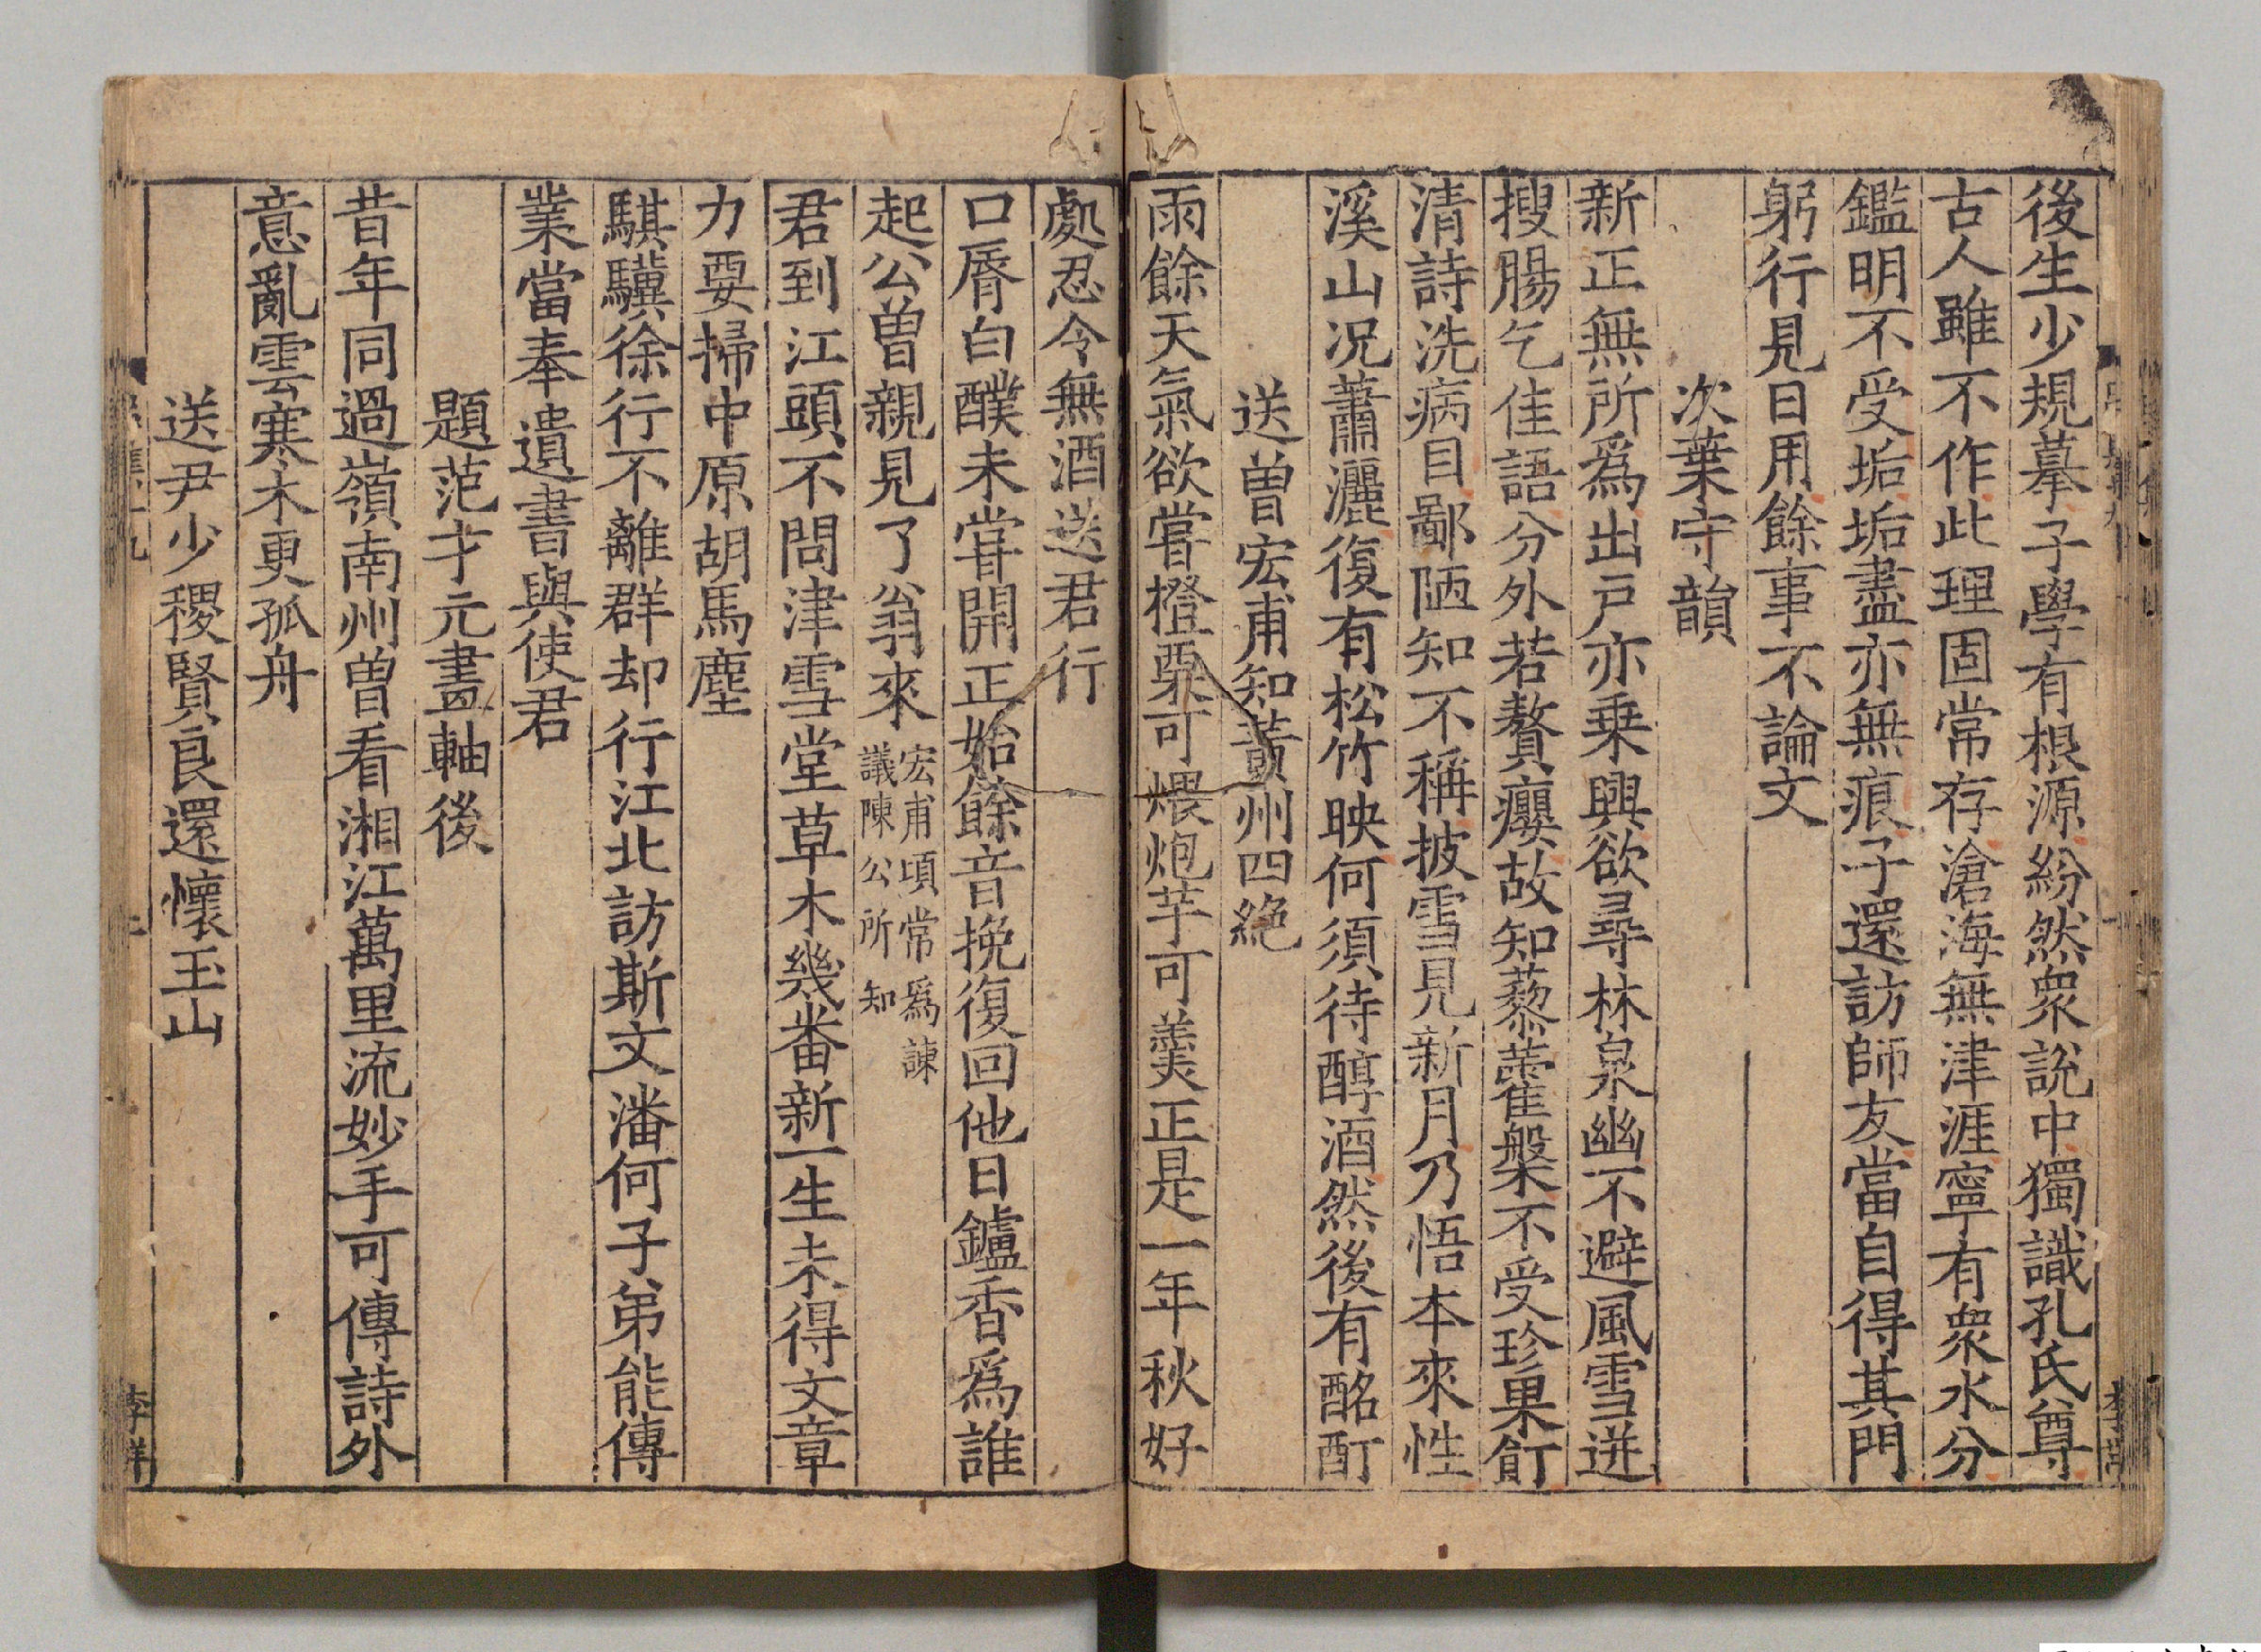 後生少規摹子學有根源紛然衆說中獨識孔氏尊
古人雖不作此理固常存滄海無津涯寧有衆水分
鑑明不受垢垢盡亦無痕子還訪師友當自得其門
躬行見日用餘事不論文
次葉守韻
新正無所爲出戸亦乗興欲尋林泉幽不避風雪迸
搜腸乞佳語分外若贅癭故知藜藿槃不受珍果飣
清詩洗病目鄙陋知不稱披雪見新月乃悟本來性
溪山况蕭灑復有松竹映何須待醇酒然後有酩酊
送曽宏甫知黃州四絶
雨餘天氣欲嘗橙栗可煨炮芋可羹正是一年秋好
處忍令無酒送君行
口脣白醭未甞開正始餘音挽復回他日鑪香爲誰
起公曽親見了翁來宏甫頃常爲諫
議陳公所知
君到江頭不問津雪堂草木幾番新一生未得文章
力要掃中原胡馬塵
騏驥徐行不離群却行江北訪斯文潘何子弟能傳
業當奉遺書與使君
題范才元畫軸後
昔年同過嶺南州曽看湘江萬里流妙手可傳詩外
意亂雲寒木更孤舟
送尹少稷賢良還懷玉山